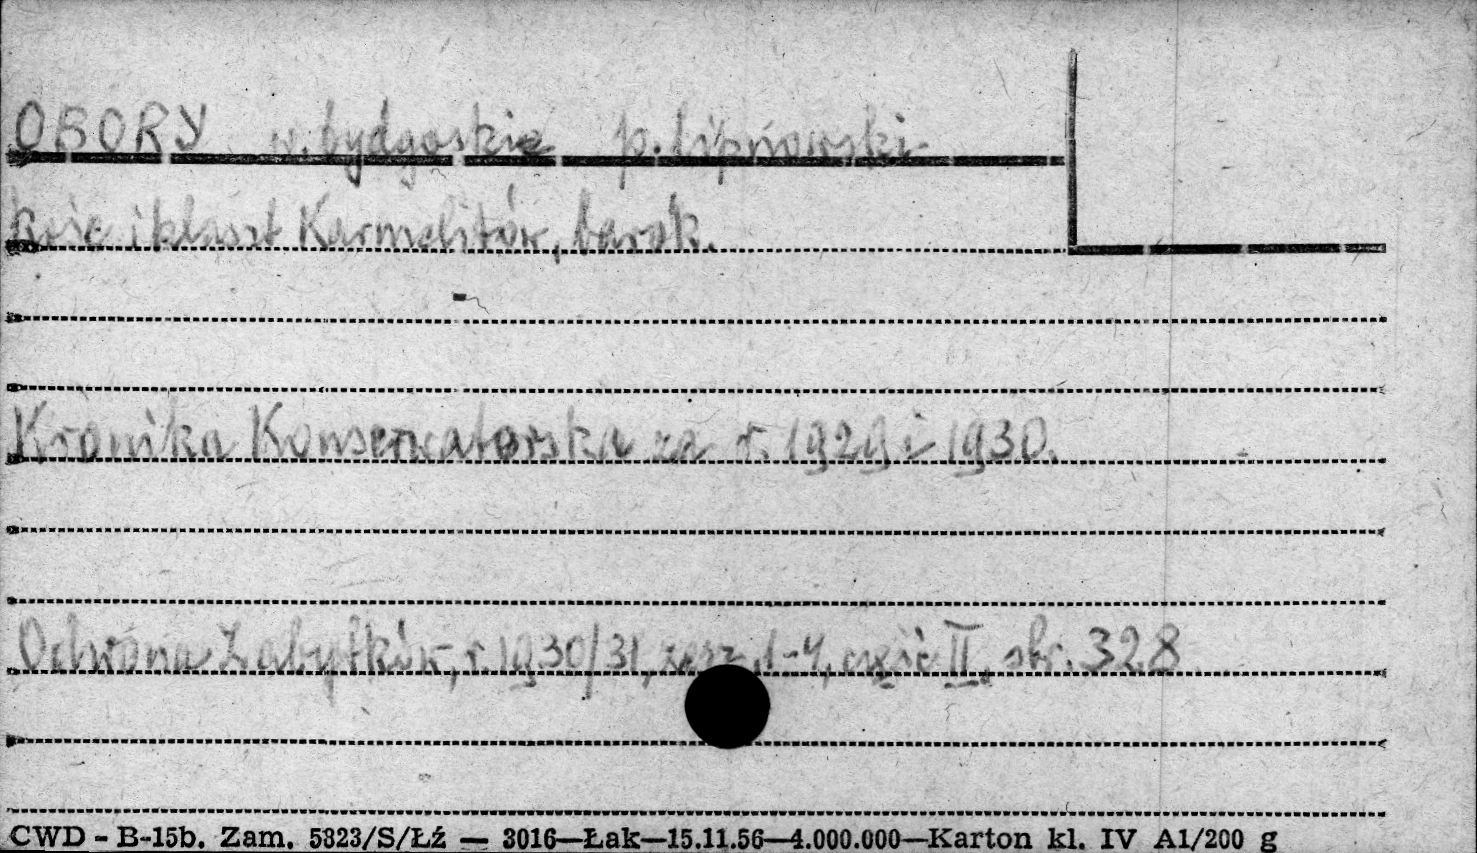 OBORY w. bydgoskie p. lipnowski
kośc i klaszt Karmelitów, barok.
Kronika Konserwatorska za r. 1929 i 1930.
Ochrona Zabytków, r. 1930/31, zesz. 1-4, część II, str. 328
CWD - B-15b. Zam. 5823/S/Łź — 3016—Łak—15.11.56—4.000.000—Karton kl. IV A1/200 g